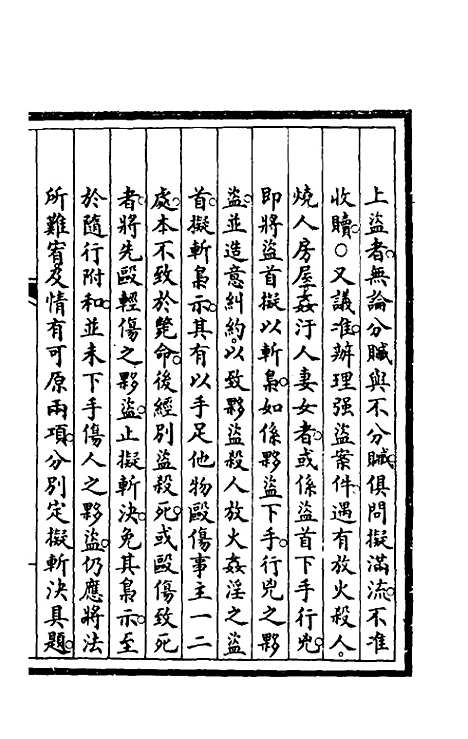 上盜者。無論分贓與不分贓。俱問擬滿流。不准
收贖。○又議准。辦理强盜案件。遇有放火殺人。
燒人房屋。姦汙人妻女者。或係盜首下手行兇。
即將盜首擬以斬梟。如係夥盜下手。行兇之夥
盜。並造意糾約。以致夥盜殺人放火姦淫之盜
首。擬斬梟示。其有以手足他物毆傷事主一二
處。本不致於斃命。後經別盜殺死。或毆傷致死
者。將先毆輕傷之夥盜。止擬斬決。免其梟示。至
於隨行附和。並未下手傷人之夥盜。仍應將法
所難宥及情有可原兩項。分別定擬斬決具題。